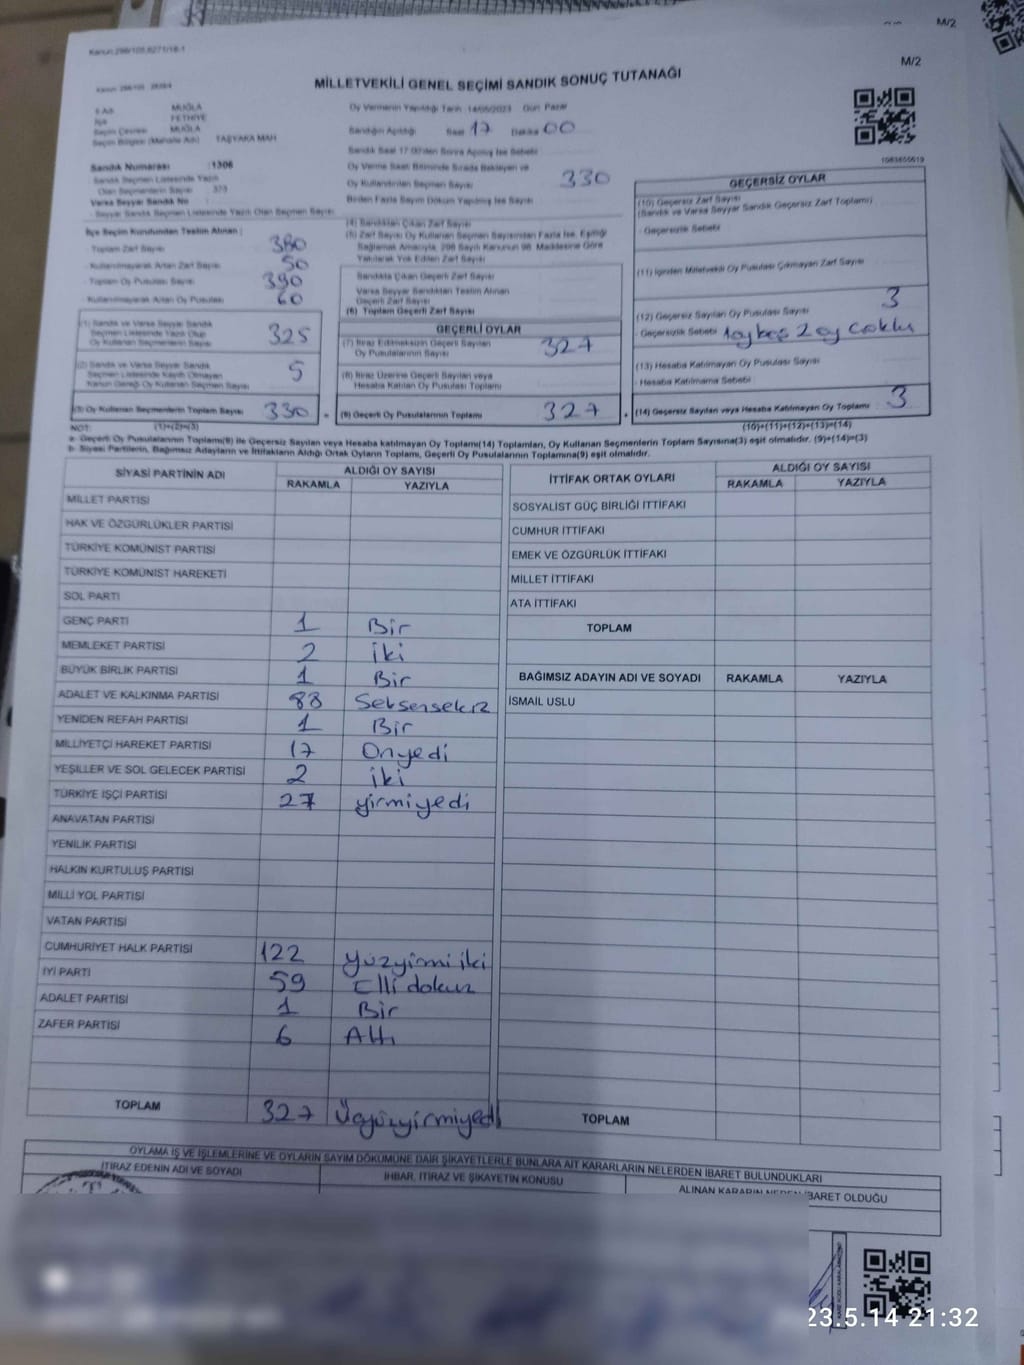 Kanun:298/105,6271/16-1
M/2
M/2
MİLLETVEKİLİ GENEL SEÇİMİ SANDIK SONUÇ TUTANAĞI
İl Adı MUĞLA
İlçe FETHİYE
Seçim Çevresi MUĞLA
Seçim Bölgesi (Mahalle Adı) TAŞYAKA MAH
Oy Vermenin Yapıldığı Tarih 14/05/2023 Gün Pazar
Sandığın Açıldığı Saat 17 Dakika 00
Sandık Saat 17:00'den Sonra Açılmış İse Sebebi
Sandık Numarası :1306
Sandık Seçmen Listesinde Yazılı
Olan Seçmenlerin Sayısı : 373
Varsa Seyyar Sandık No :
- Seyyar Sandık Seçmen Listesinde Yazılı Olan Seçmen Sayısı :
Oy Verme Saati Bitiminde Sırada Bekleyen ve
Oy Kullandırılan Seçmen Sayısı 330
Birden Fazla Sayım Döküm Yapılmış İse Sayısı
İlçe Seçim Kurulundan Teslim Alınan :
- Toplam Zarf Sayısı 380
- Kullanılmayarak Artan Zarf Sayısı 50
- Toplam Oy Pusulası Sayısı 390
- Kullanılmayarak Artan Oy Pusulası 60
(1) Sandık ve Varsa Seyyar Sandık
Seçmen Listesinde Yazılı Olup
Oy Kullanan Seçmenlerin Sayısı 325
(2) Sandık ve Varsa Seyyar Sandık
Seçmen Listesinde Kayıtlı Olmayan
Kanun Gereği Oy Kullanan Seçmen Sayısı 5
(3) Oy Kullanan Seçmenlerin Toplam Sayısı 330
(1)+(2)=(3)
(4) Sandıktan Çıkan Zarf Sayısı
(5) Zarf Sayısı Oy Kullanan Seçmen Sayısından Fazla İse, Eşitliği
Sağlamak Amacıyla, 298 Sayılı Kanunun 98. Maddesine Göre
Yakılarak Yok Edilen Zarf Sayısı
Sandıkta Çıkan Geçerli Zarf Sayısı
Varsa Seyyar Sandıktan Teslim Alınan
Geçerli Zarf Sayısı
(6) Toplam Geçerli Zarf Sayısı
GEÇERLİ OYLAR
(7) İtiraz Edilmeksizin Geçerli Sayılan
Oy Pusulalarının Sayısı 327
(8) İtiraz Üzerine Geçerli Sayılan veya
Hesaba Katılan Oy Pusulası Toplamı
(9) Geçerli Oy Pusulalarının Toplamı 327
1083655619
GEÇERSİZ OYLAR
(10) Geçersiz Zarf Sayısı
(Sandık ve Varsa Seyyar Sandık Geçersiz Zarf Toplamı)
- Geçersizlik Sebebi
(11) İçinden Milletvekili Oy Pusulası Çıkmayan Zarf Sayısı
(12) Geçersiz Sayılan Oy Pusulası Sayısı 3
- Geçersizlik Sebebi 1 oy boş 2 oy çoklu
(13) Hesaba Katılmayan Oy Pusulası Sayısı
- Hesaba Katılmama Sebebi
(14) Geçersiz Sayılan veya Hesaba Katılmayan Oy Toplamı 3
(10)+(11)+(12)+(13)=(14)
NOT:
a- Geçerli Oy Pusulalarının Toplamı(9) ile Geçersiz Sayılan veya Hesaba katılmayan Oy Toplamı(14) Toplamları, Oy Kullanan Seçmenlerin Toplam Sayısına(3) eşit olmalıdır. (9)+(14)=(3)
b- Siyasi Partilerin, Bağımsız Adayların ve İttifakların Aldığı Ortak Oyların Toplamı, Geçerli Oy Pusulalarının Toplamına(9) eşit olmalıdır.
SİYASİ PARTİNİN ADI ALDIĞI OY SAYISI
RAKAMLA YAZIYLA
MİLLET PARTİSİ
HAK VE ÖZGÜRLÜKLER PARTİSİ
TÜRKİYE KOMÜNİST PARTİSİ
TÜRKİYE KOMÜNİST HAREKETİ
SOL PARTİ
GENÇ PARTİ 1 Bir
MEMLEKET PARTİSİ 2 iki
BÜYÜK BİRLİK PARTİSİ 1 Bir
ADALET VE KALKINMA PARTİSİ 88 Seksensekiz
YENİDEN REFAH PARTİSİ 1 Bir
MİLLİYETÇİ HAREKET PARTİSİ 17 Onyedi
YEŞİLLER VE SOL GELECEK PARTİSİ 2 iki
TÜRKİYE İŞÇİ PARTİSİ 27 yirmiyedi
ANAVATAN PARTİSİ
YENİLİK PARTİSİ
HALKIN KURTULUŞ PARTİSİ
MİLLİ YOL PARTİSİ
VATAN PARTİSİ
CUMHURİYET HALK PARTİSİ 122 yüzyirmi iki
İYİ PARTİ 59 Elli dokuz
ADALET PARTİSİ 1 Bir
ZAFER PARTİSİ 6 Altı
TOPLAM 327 Üçyüzyirmiyedi
İTTİFAK ORTAK OYLARI ALDIĞI OY SAYISI
RAKAMLA YAZIYLA
SOSYALİST GÜÇ BİRLİĞİ İTTİFAKI
CUMHUR İTTİFAKI
EMEK VE ÖZGÜRLÜK İTTİFAKI
MİLLET İTTİFAKI
ATA İTTİFAKI
TOPLAM
BAĞIMSIZ ADAYIN ADI VE SOYADI RAKAMLA YAZIYLA
İSMAİL USLU
TOPLAM
OYLAMA İŞ VE İŞLEMLERİNE VE OYLARIN SAYIM DÖKÜMÜNE DAİR ŞİKAYETLERLE BUNLARA AİT KARARLARIN NELERDEN İBARET BULUNDUKLARI
İTİRAZ EDENİN ADI VE SOYADI İHBAR, İTİRAZ VE ŞİKAYETİN KONUSU ALINAN KARARIN NEDEN İBARET OLDUĞU
23.5.14 21:32